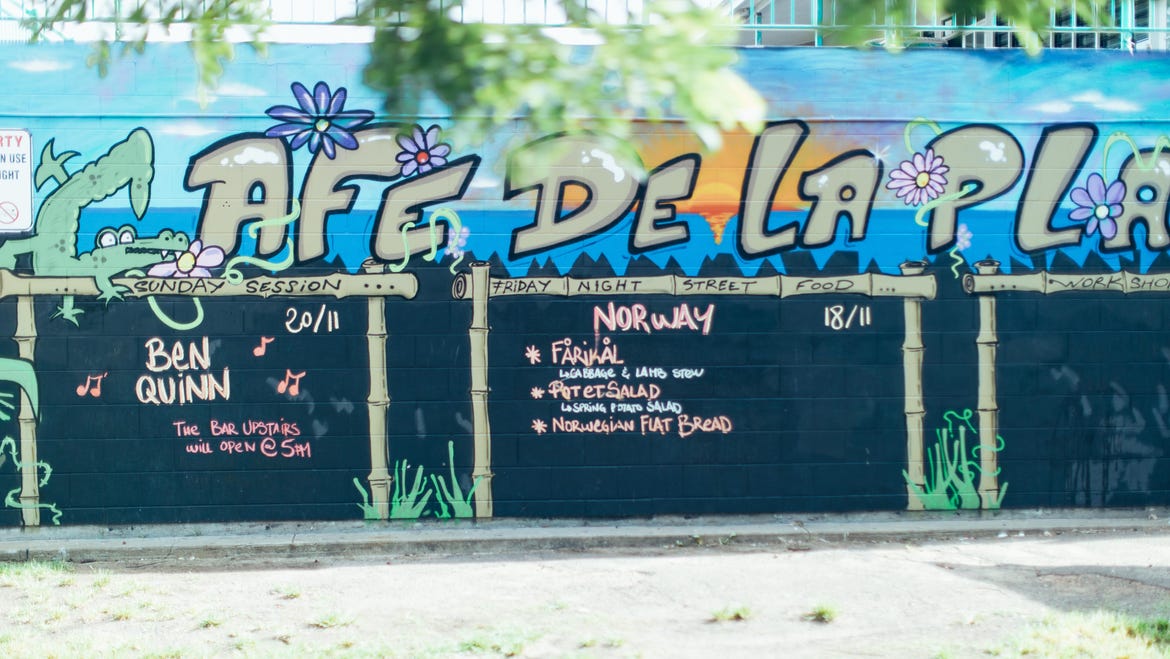 RTY
N USE
IGHT
AFE DE LA PLA
SUNDAY SESSION
20/11
BEN
QUINN
THE BAR UPSTAIRS
will OPEN @ 5PM
FRIDAY NIGHT STREET FOOD
NORWAY 18/11
* FÅRIKÅL
↳ CABBAGE & LAMB STEW
* POTETSALAD
↳ SPRING POTATO SALAD
* NORWEGIAN FLAT BREAD
WORKSHO